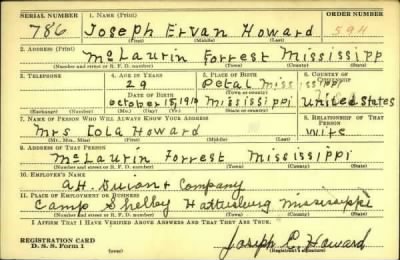 SERIAL NUMBER 1. NAME (Print) ORDER NUMBER
786 Joseph Ervan Howard 594
(First) (Middle) (Last)
2. ADDRESS (Print)
McLaurin Forrest Mississipp
(Number and street or R. F. D. number) (Town) (County) (State)
3. TELEPHONE 4. AGE IN YEARS 5. PLACE OF BIRTH 6. COUNTRY OF CITIZENSHIP
29 Petal Miss issippi
DATE OF BIRTH (Town or county)
October 15, 1910 Mississippi United States
(Exchange) (Number) (Mo.) (Day) (Yr.) (State or country)
7. NAME OF PERSON WHO WILL ALWAYS KNOW YOUR ADDRESS 8. RELATIONSHIP OF THAT PERSON
Mrs Iola Howard wife
(Mr., Mrs., Miss) (First) (Middle) (Last)
9. ADDRESS OF THAT PERSON
McLaurin Forrest Mississippi
(Number and street or R. F. D. number) (Town) (County) (State)
10. EMPLOYER'S NAME
Company
11. PLACE OF EMPLOYMENT OR BUSINESS
Camp Shelby Hattiesburg Mississippi
(Number and street or R. F. D. number) (Town) (County) (State)
I AFFIRM THAT I HAVE VERIFIED ABOVE ANSWERS AND THAT THEY ARE TRUE.
REGISTRATION CARD
D. S. S. Form 1 Joseph E. Howard